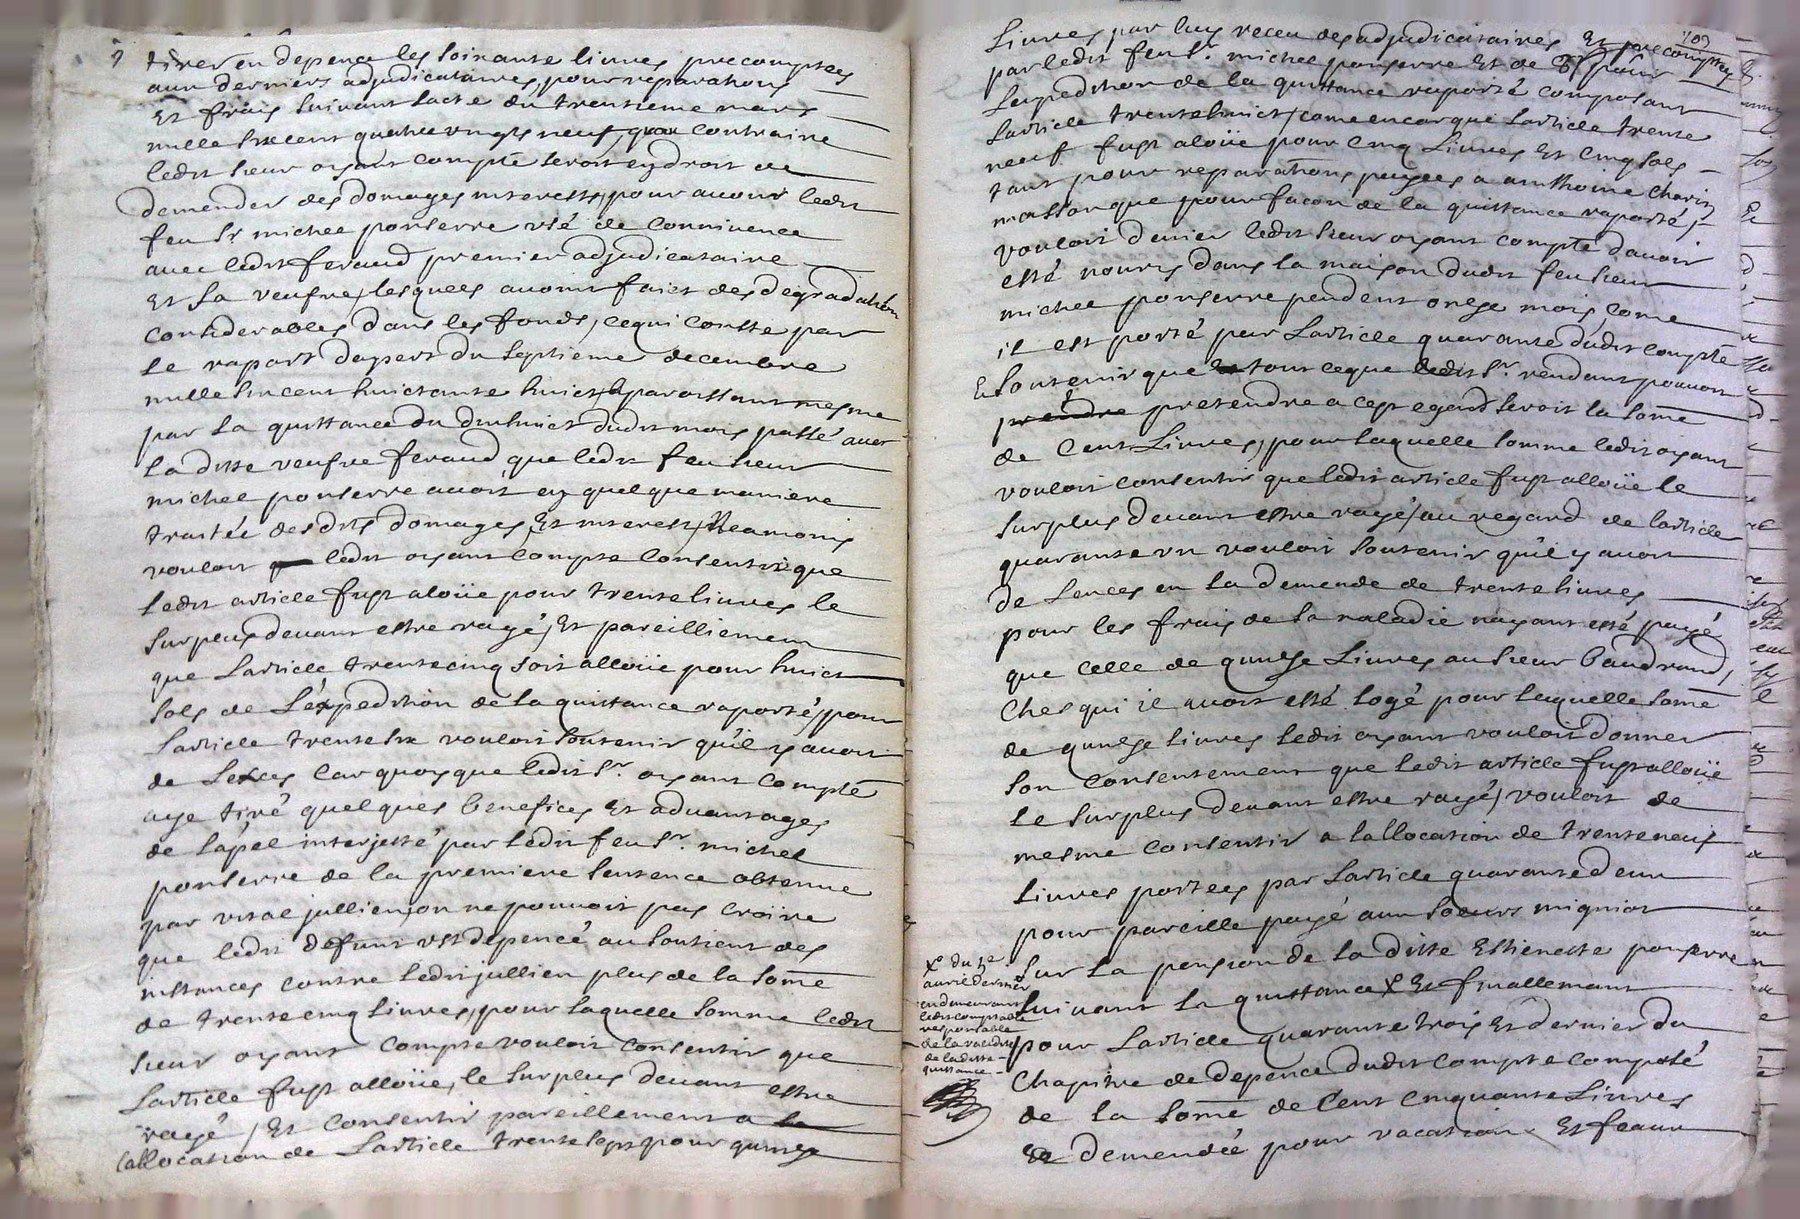 tirer en depence les soixante livres precomptees
aux derniers adjudicataires, pour reparations
Et frais suivant lacte du trentieme mars
mille six cent quatre vingts neuf, contraire
ledit sieur oyant compte seroit en droit de
demender des domages interests, pour avoir ledit
feu Sr. michel ponserre usé de connivence
avec ledit feraud premier adjudicataire
Et sa veufve, lesquels avoint faict des degradation
considerables dans les fonds, ce qui conste par
le raport dexpert du septieme decembre
mille six cent huictante huict, & paroissant mesme
par la quittance du dixhuict dudit mois passé avec
la ditte veufve feraud, que ledit feu sieur
michel ponserre avoit en quelque maniere
traitée desdits domages, Et interest, Neamoins
vouloit ledit oyant compte consentir que
ledit article fust aloüe pour trente livres le
surplus devant estre rayé, Et pareilliement
que larticle trente cinq soit alloüe pour huict
sols de Léxpedition de la quittance raporté, pour
Larticle trente six vouloit soutenir qu'il y avoit
de Lexces car quoyque ledit Sr. oyant compte
aye tiré quelques benefices Et advantages
de lápel interjetté par ledit feu Sr. michel
ponserre de la premiere sentence obtenue
par vital jullien, on ne pouvoit pas croire
que ledit defunt ust depencé au soutient des
instances contre ledit jullien plus de la some
de trente cinq Livres, pour laquelle somme ledit
sieur oyant compte vouloit consentir que
Larticle fust alloüe, le surplus devant estre
rayé, Et consentir pareillement a la
lallocation de Larticle trente sept pour quinze
Livres par luy receu des adjudicataires Et precomptes
par ledit feu Sr. michel ponserre Et de pour
Lexpedition de la quittance raporté composant
Larticle trente huict, come encor que Larticle trente
neuf fust aloüe pour cinq Livres Et cinq sols
tant pour reparations payees a anthoine
masson que pour facon de la quittance raporté,
vouloit denier ledit sieur oyant compte davoir
esté nourry dans la maison dudit feu sieur
michel ponserre pendent onze mois, come
il est porté par Larticle quarante dudit compte
E soutenir que tout ce que ledit Sr. rendant pouvoit
prendre pretendre a cest egard seroit la some
de Cent Livres, pour laquelle somme ledit oyant
vouloit consentir que ledit article fust alloüe le
surplus devant estre rayé, au regard de larticle
quarante un vouloit soutenir qu'il y avoit
de Lences en la demende de trente livres
pour les frais de sa maladie nayant esté payé
que celle de quinze Livres au sieur baudrand,
Ches qui il avoit esté logé pour laquelle some
de quinze livres ledit oyant vouloit donner
son consentement que ledit article fust alloüe
le surplus devant estre rayé, vouloit de
mesme consentir a lallocation de trente neuf
Livres portees par Larticle quarante deux
pour pareille payé aux soeurs migniot
sur la pension de la ditte Estienette ponserre
suivant la quittance X Et finallemant
X du 5e
avril dernier
en demeurant
ledit comptable
responsable
de la validité
de la ditte
quittance
pour Larticle quarante trois Et dernier du
Chapitre de depence dudit compte composé
de la some de Cent cinquante Livres
demendée pour vacation Et feaux